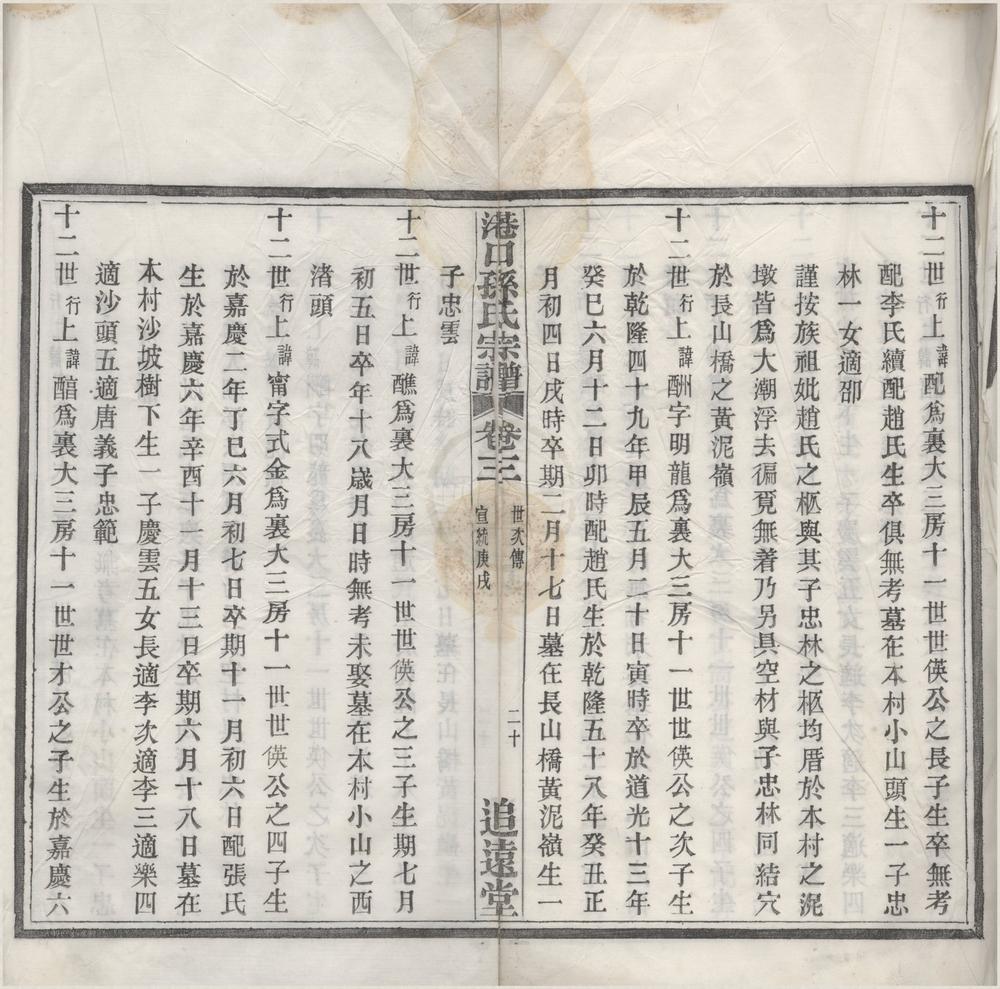 十二世行上諱配爲裏大三房十一世世偀公之長子生卒無考
配李氏續配趙氏生卒俱無考墓在本村小山頭生一子忠
林一女適邵
謹按族祖妣趙氏之柩與其子忠林之柩均厝於本村之泥
墩皆爲大潮浮去徧覓無着乃另具空材與子忠林同結穴
於長山橋之黃泥嶺
十二世行上諱酬字明龍爲裏大三房十一世世偀公之次子生
於乾隆四十九年甲辰五月二十日寅時卒於道光十三年
癸巳六月十二日卯時配趙氏生於乾隆五十八年癸丑正
月初四日戌時卒期二月十七日墓在長山橋黃泥嶺生一
港口孫氏宗譜
卷三
世次傳
宣統庚戌
二十
追遠堂
子忠雲
十二世行上諱醮爲裏大三房十一世世偀公之三子生期七月
初五日卒年十八歲月日時無考未娶墓在本村小山之西
渚頭
十二世行上諱甯字式金爲裏大三房十一世世偀公之四子生
於嘉慶二年丁巳六月初七日卒期十一月初六日配張氏
生於嘉慶六年辛酉十一月十三日卒期六月十八日墓在
本村沙坡樹下生一子慶雲五女長適李次適李三適樂四
適沙頭五適唐義子忠範
十二世行上諱醕爲裏大三房十一世世才公之子生於嘉慶六